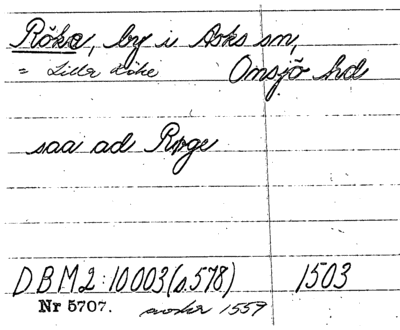 Röke, by i Asks sn,
= Lilla Röke Onsjö hd
saa ad Røge
DBM2:10003(s.578) 1503
Nr 5707. avskr 1559